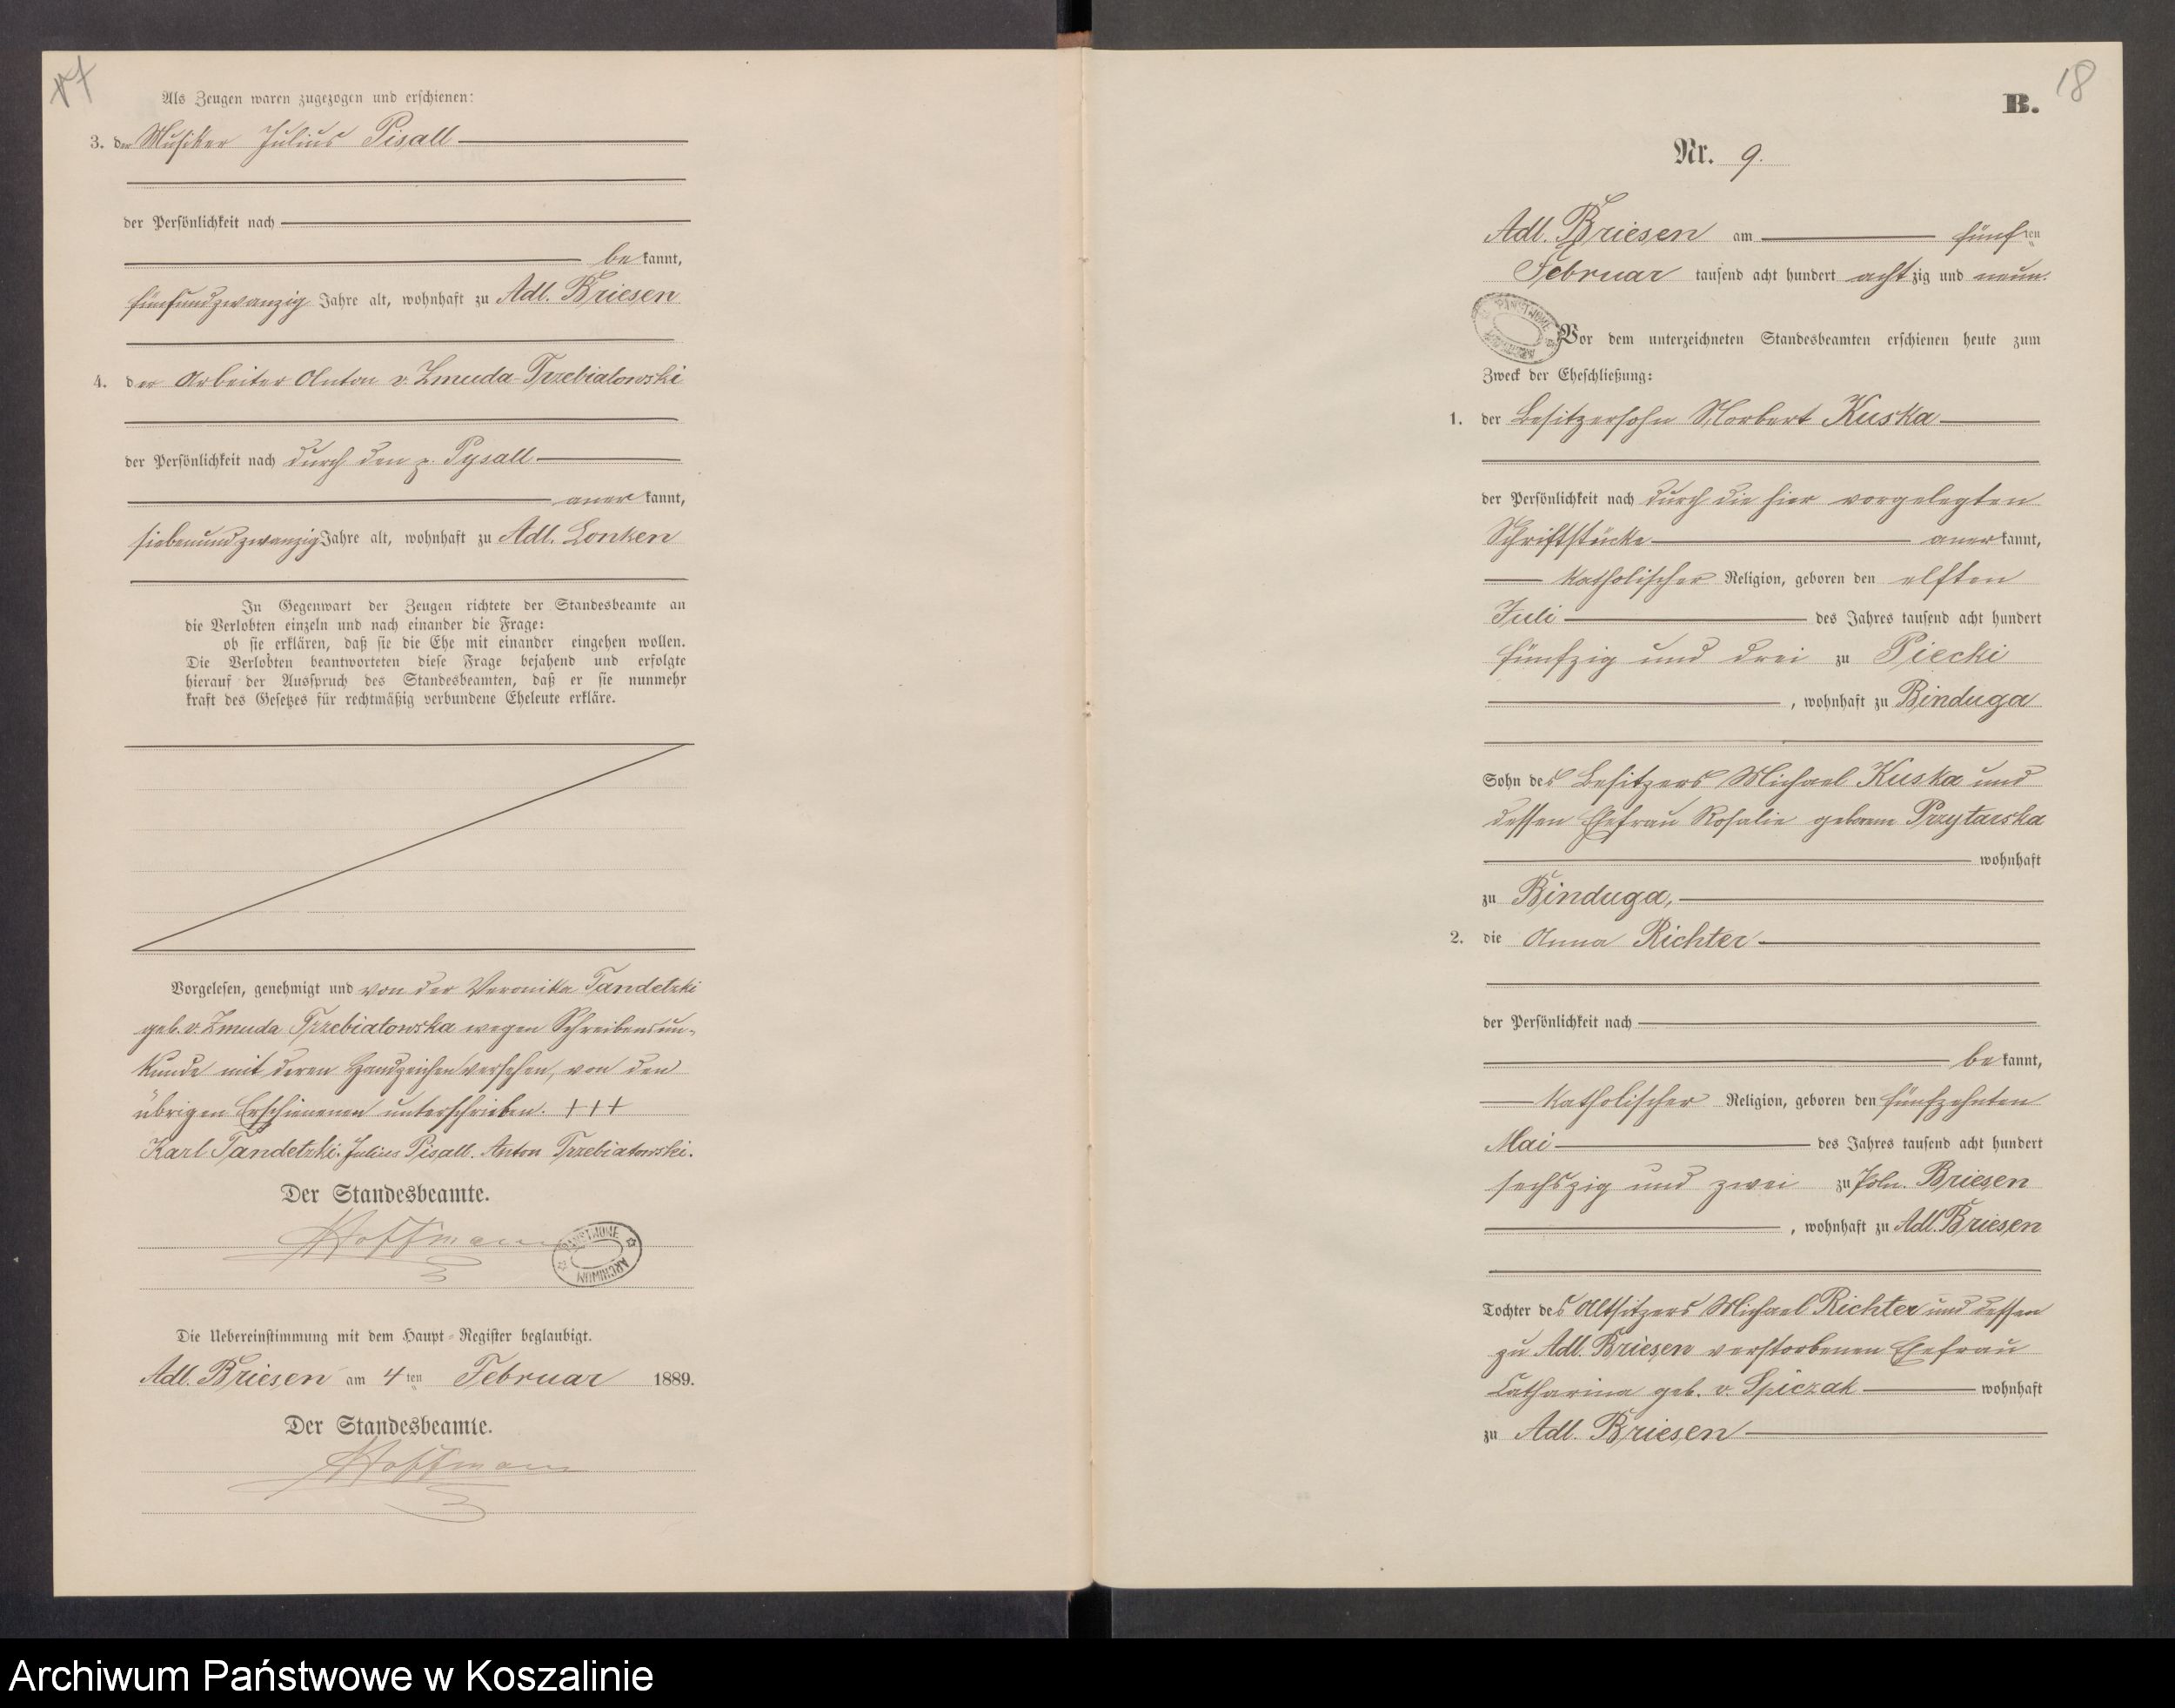 Als Zeugen waren zugezogen und erschienen:
3. der Musiker Julius Pisall
der Persönlichkeit nach
bekannt,
fünfundzwanzig Jahre alt, wohnhaft zu Adl. Briesen
4. der Arbeiter Anton v. Zmuda-Trzebiatowski
der Persönlichkeit nach durch den p. Pysall
anerkannt,
siebenundzwanzig Jahre alt, wohnhaft zu Adl. Lonken
In Gegenwart der Zeugen richtete der Standesbeamte an
die Verlobten einzeln und nach einander die Frage:
ob sie erklären, daß sie die Ehe mit einander eingehen wollen.
Die Verlobten beantworteten diese Frage bejahend und erfolgte
hierauf der Ausspruch des Standesbeamten, daß er sie nunmehr
kraft des Gesetzes für rechtmäßig verbundene Eheleute erkläre.
Vorgelesen, genehmigt und von der Veronika Tandetzki
geb. v. Zmuda Trzebiatowska wegen Schreibensun-
kunde mit deren Handzeichen versehen, von den
übrigen Erschienenen unterschrieben. +++
Karl Tandetzki. Julius Pisall. Anton Trzebiatowski.
Der Standesbeamte.
Hoffmann
PAŃSTWOWE ARCHIWUM
Die Uebereinstimmung mit dem Haupt-Register beglaubigt.
Adl. Briesen am 4ten Februar 1889.
Der Standesbeamte.
Hoffmann
18
B.
Nr. 9.
Adl. Briesen am fünften
Februar tausend acht hundert achtzig und neun.
PAŃSTWOWE ARCHIWUM
Vor dem unterzeichneten Standesbeamten erschienen heute zum
Zweck der Eheschließung:
1. der Besitzersohn Norbert Kuska
der Persönlichkeit nach durch die hier vorgelegten
Schriftstücke anerkannt,
katholischer Religion, geboren den elften
Juli des Jahres tausend acht hundert
fünfzig und drei zu Piecki
, wohnhaft zu Binduga
Sohn des Besitzers Michael Kuska und
dessen Ehefrau Rosalie geborene Przytarska
wohnhaft
zu Binduga,
2. die Anna Richter
der Persönlichkeit nach
bekannt,
katholischer Religion, geboren den fünfzehnten
Mai des Jahres tausend acht hundert
sechszig und zwei zu Poln. Briesen
, wohnhaft zu Adl. Briesen
Tochter des Altsitzers Michael Richter und dessen
zu Adl. Briesen verstorbenen Ehefrau
Catharina geb. v. Spiczak wohnhaft
zu Adl. Briesen
Archiwum Państwowe w Koszalinie